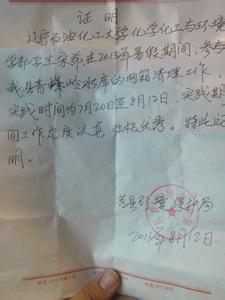 证明
辽宁石油化工大学化学化工与环境
学部学生宋 在2013年暑假期间,参与
我县青峰岭水库的网箱清理工作,
实践时间为7月20日至8月12日,实践期
间工作态度认真 积极优秀。特此证
明。
莒县环境保护局
2013年8月12日